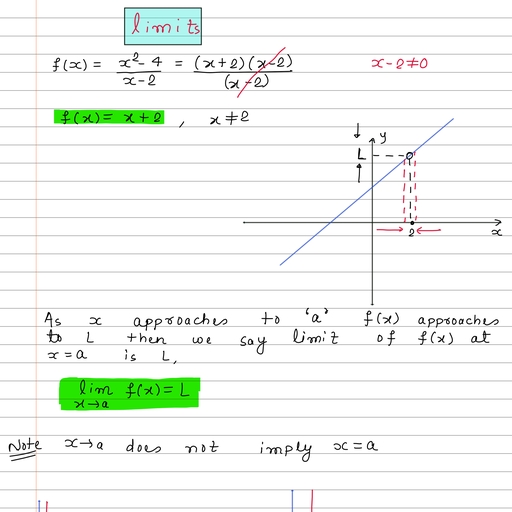 limits
f(x) = x² - 4 / x - 2 = (x+2)(x-2) / (x-2)    x - 2 ≠ 0
f(x) = x + 2 , x ≠ 2
y
L
2
x
As x approaches to 'a' f(x) approaches
to L then we say limit of f(x) at
x = a is L,
lim f(x) = L
x→a
Note x→a does not imply x = a